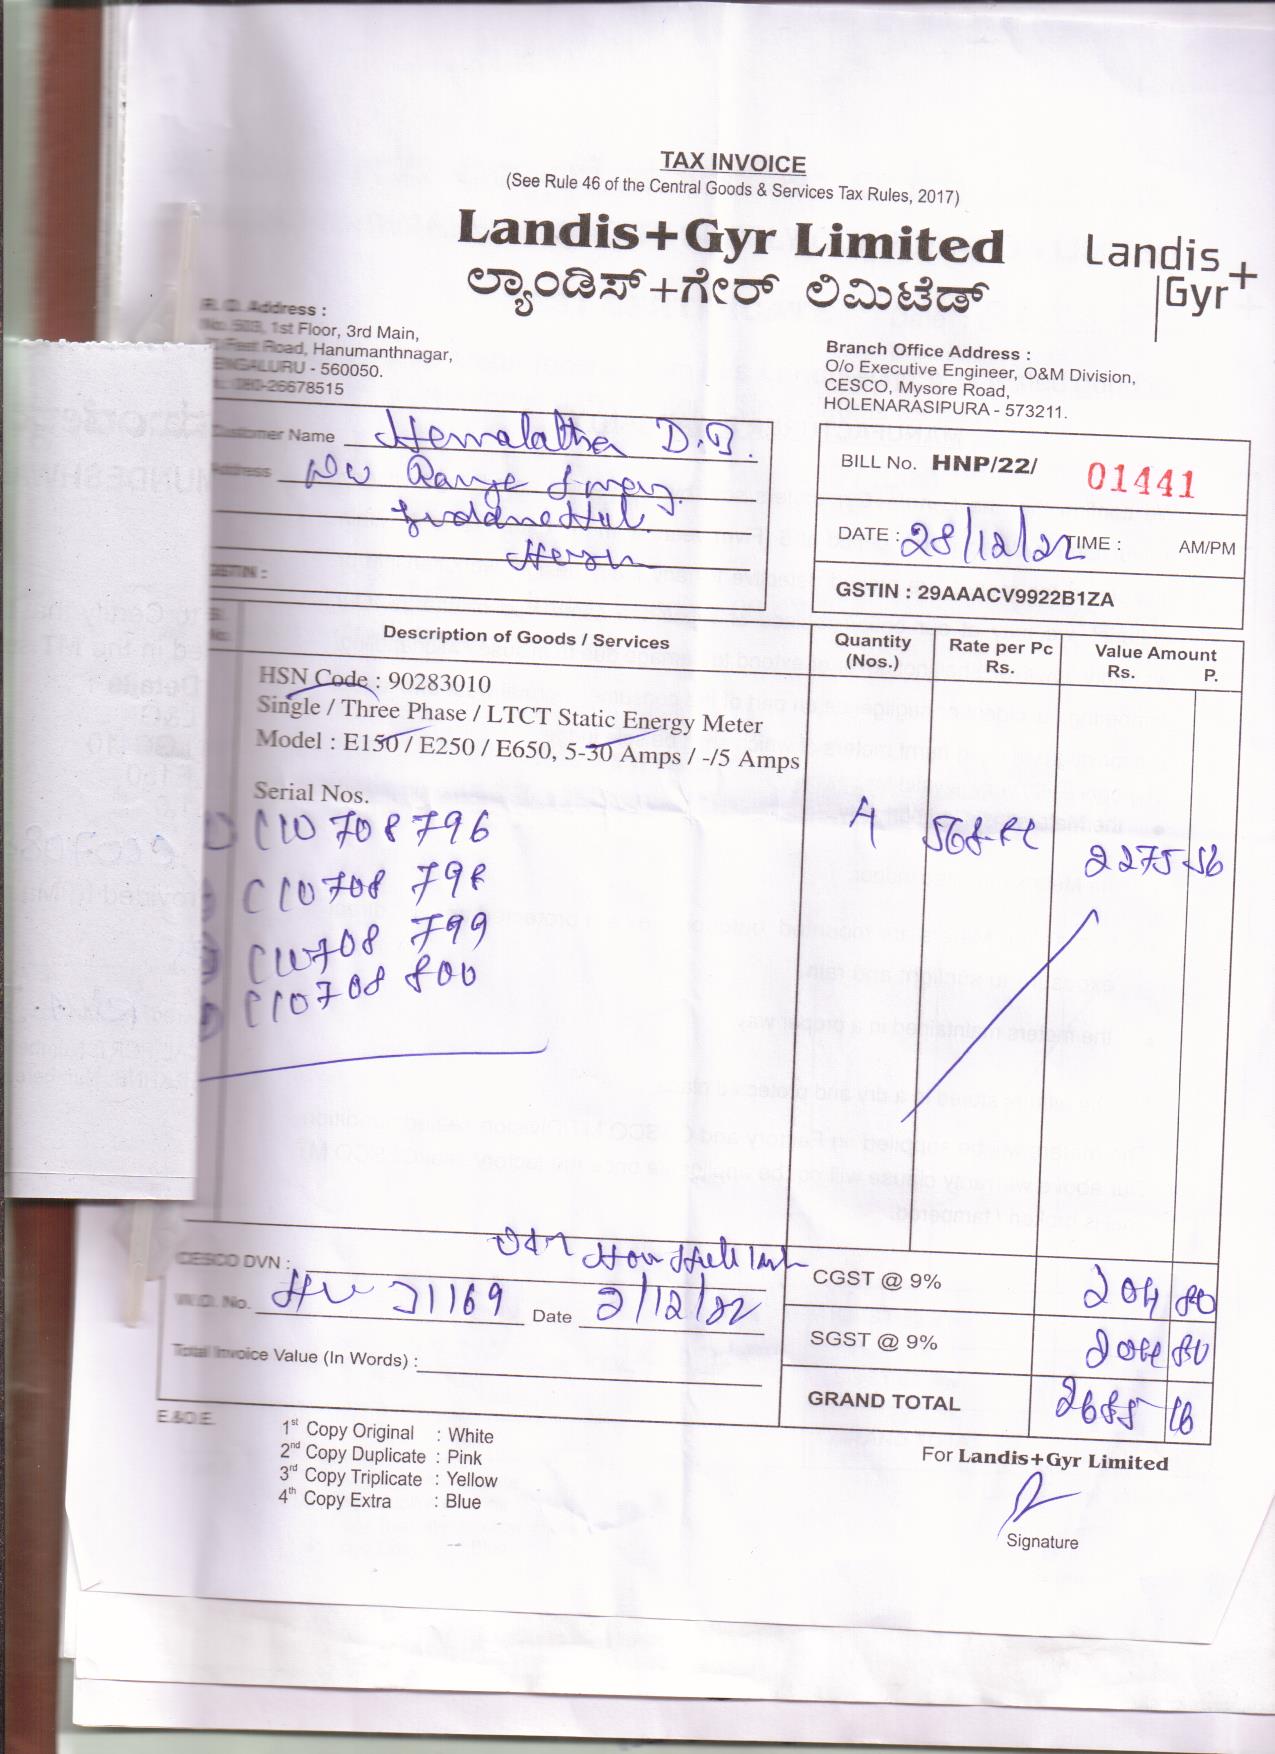 TAX INVOICE
(See Rule 46 of the Central Goods & Services Tax Rules, 2017)
Landis+Gyr Limited
ಲ್ಯಾಂಡಿಸ್+ಗೇರ್ ಲಿಮಿಟೆಡ್
Landis
Gyr+
R. O. Address :
No. 503, 1st Floor, 3rd Main,
Feet Road, Hanumanthnagar,
BENGALURU - 560050.
080-26678515
Branch Office Address :
O/o Executive Engineer, O&M Division,
CESCO, Mysore Road,
HOLENARASIPURA - 573211.
Customer Name Hemalatha D.B.
Address
GSTIN :
BILL No. HNP/22/ 01441
DATE : 28/12/22 TIME : AM/PM
GSTIN : 29AAACV9922B1ZA
Sl. No. Description of Goods / Services Quantity (Nos.) Rate per Pc Rs. Value Amount Rs. P.
HSN Code : 90283010
Single / Three Phase / LTCT Static Energy Meter
Model : E150 / E250 / E650, 5-30 Amps / -/5 Amps
Serial Nos.
C10708796 4 2275 56
C10708798
C10708799
C10708800
CESCO DVN :
W.O. No. 21169 Date 2/12/22
Total Invoice Value (In Words) :
CGST @ 9% 204 80
SGST @ 9% 204 80
GRAND TOTAL 2685 16
E.&O.E.
1st Copy Original : White
2nd Copy Duplicate : Pink
3rd Copy Triplicate : Yellow
4th Copy Extra : Blue
For Landis+Gyr Limited
Signature